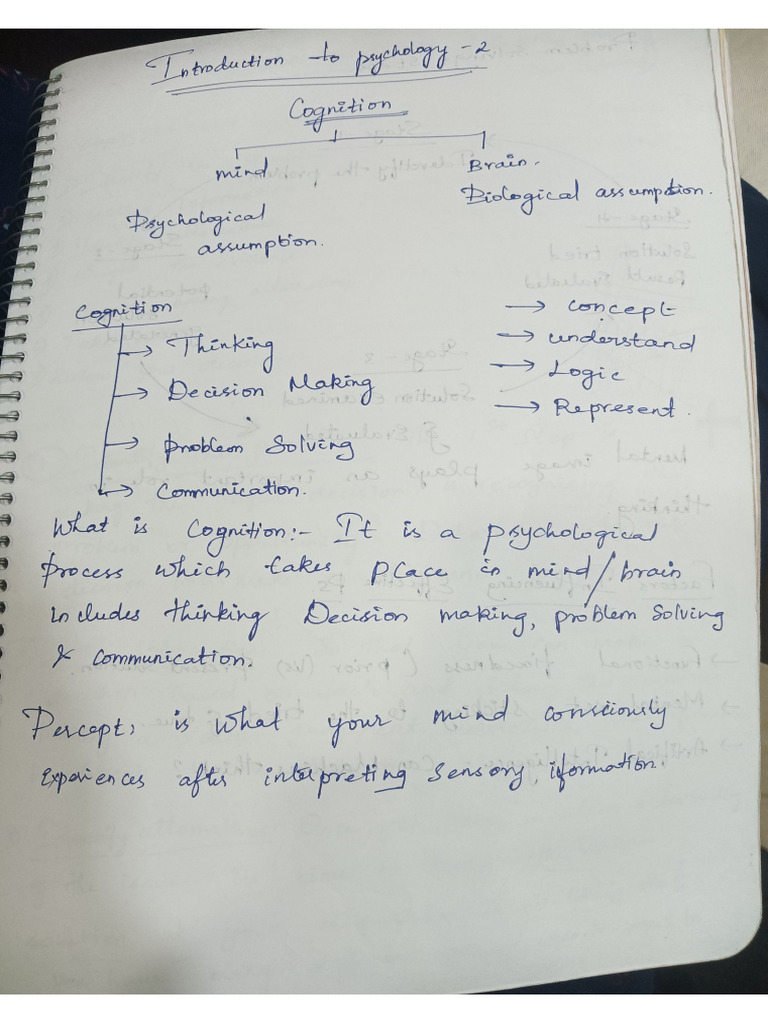 Introduction to psychology - 2
Cognition
mind
Brain.
Psychological
assumption.
Biological assumption.
Cognition
→ Thinking
→ Decision Making
→ problem Solving
→ Communication.
→ concept
→ understand
→ Logic
→ Represent.
What is Cognition:- It is a psychological
process which takes place in mind/brain
includes thinking Decision making, problem Solving
& communication.
Percept: is what your mind consciously
experiences after interpreting sensory iformation.